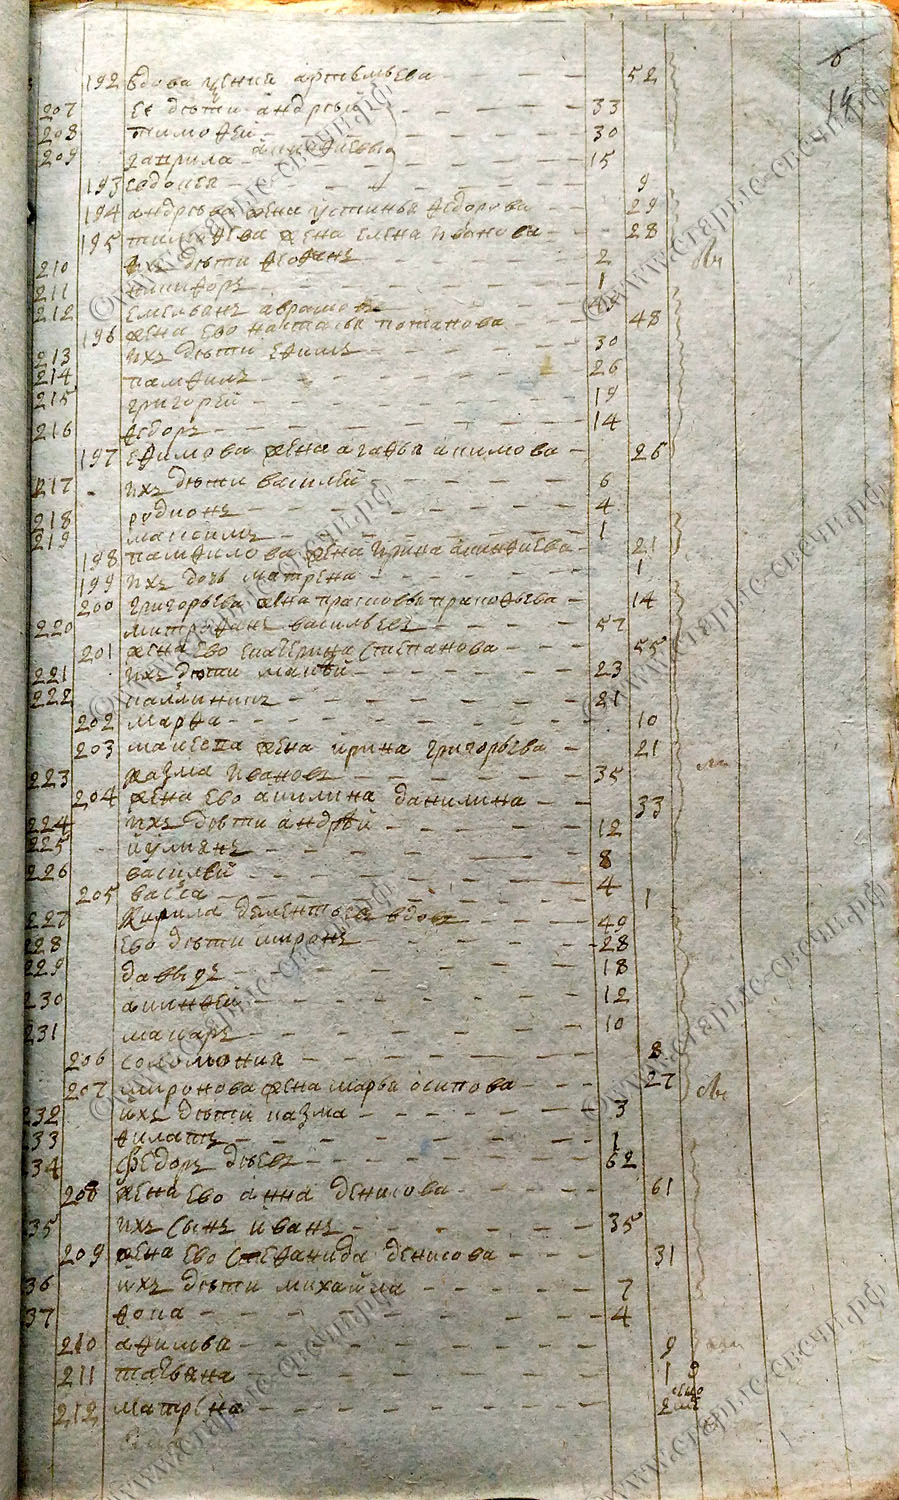 6
14
192 вдова ксения артемьева 52
207 ее дѣти андрѣй 33
208 тимофей 30
209 гаврила акинфиевы 15
193 9
194 андрѣева жена устинья федорова 29
195 жена елена иванова 28
210 ихъ дѣти 2
211 1
212 емельянъ
196 жена ево настасья потапова 48
213 ихъ дѣти ефимъ 30
214 памфилъ 26
215 григорей 19
216 федоръ 14
197 ефимова жена агафья акимова 26
217 ихъ дѣти василей 6
218 родионъ 4
219 максимъ 1
198 памфилова жена ирина акинфиева 21
199 ихъ дочь матрена 1
200 григорьева жена прасковья прокофьева 14
220 митрофанъ васильевъ 57
201 жена ево екатерина степанова 55
221 ихъ дѣти 23
222 21
202 марфа 10
203 жена ирина григорьева 21
223 казма ивановъ 35
204 жена ево акилина данилина 33
224 ихъ дѣти андрѣй 12
225 иулиянъ 8
226 василей 4
205 васса 1
227 кирила дементьевъ вдовъ 49
228 ево дѣти миронъ 28
229 давыдъ 18
230 акинфей 12
231 макаръ 10
206 соломония 8
207 миронова жена марья осипова 27
232 ихъ дѣти казма 3
233 филатъ 1
34 федоръ 62
208 жена ево анна денисова 61
35 ихъ сынъ иванъ 35
209 жена ево степанида денисова 31
36 ихъ дѣти михайла 7
37 фока 4
210 афимья 9
211 татьяна 1
212 матрена
©www.старые-свечи.рф